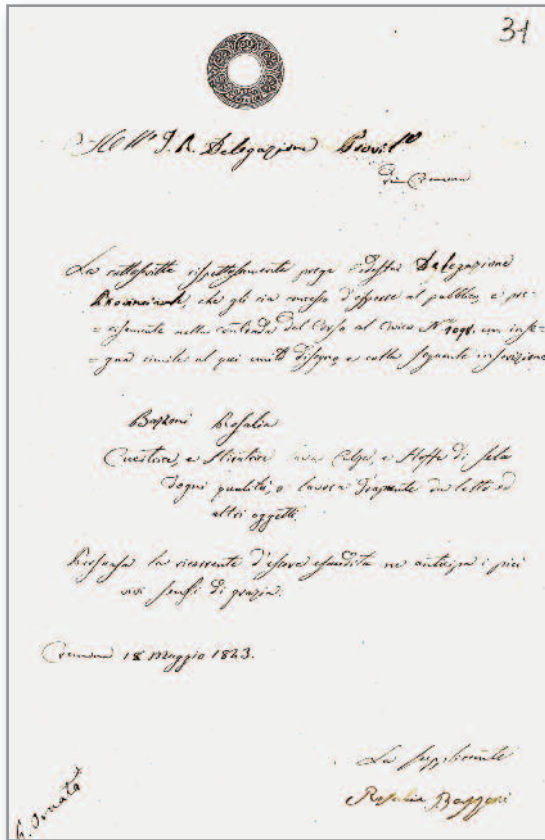 31
I. R. Delegazione Provil.e
di Cremona
La sottoscritta rispettosamente prega codesta Delegazione
Provinciale, che gli sia concesso d'esporre al pubblico, e pre-
=cisamente nella contrada del Corso al Civico N.° 1098. un inse-
=gna simile al qui unito disegno, e colla seguente inscrizione
Bazzoni Rosalia
Cucitrice, e Stiratrice lava Calze, e Stoffe di seta
d'ogni qualità, e lavora Trapunte da letto ed
altri oggetti.
la ricorrente d'essere esaudita ne anticipa i più
vivi sensi di grazia.
Cremona 18 Maggio 1843.
La supplicante
Rosalia Bazzoni
Ornato